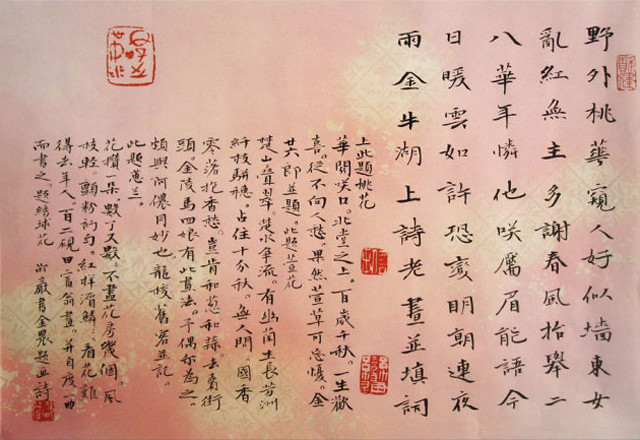 野外桃華窺人好似墻東女
亂紅無主多謝春風抬舉二
八華年憐他咲靨眉能語今
日暖雲如許恐變明朝連夜
雨金牛湖上詩老畫並填詞
上此題桃花
華開咲口北堂之上。百歲千秋。一生歡
喜。從不向人愁。果然萱草可忘憂。金
即並題。此題萱花
楚山疊翠。楚水爭流。有幽蘭生長芳洲
纖枝駢穗。占住十分秋。無人問。國香
零落抱香愁。豈肯和蔥和蒜。去賣街
頭。金陵馬四娘有此畫法。予偶爾為之。
頗與阿儂同妙也龍梭舊客並記。
此題蕙蘭。
花攢一朵。數了又數。不盡花房幾個。風
枝輕。顫粉初勻。紅 看花難
得去年人。百二硯田富翁畫。并自度一曲
而書之。題綉球花 書金農題 詩